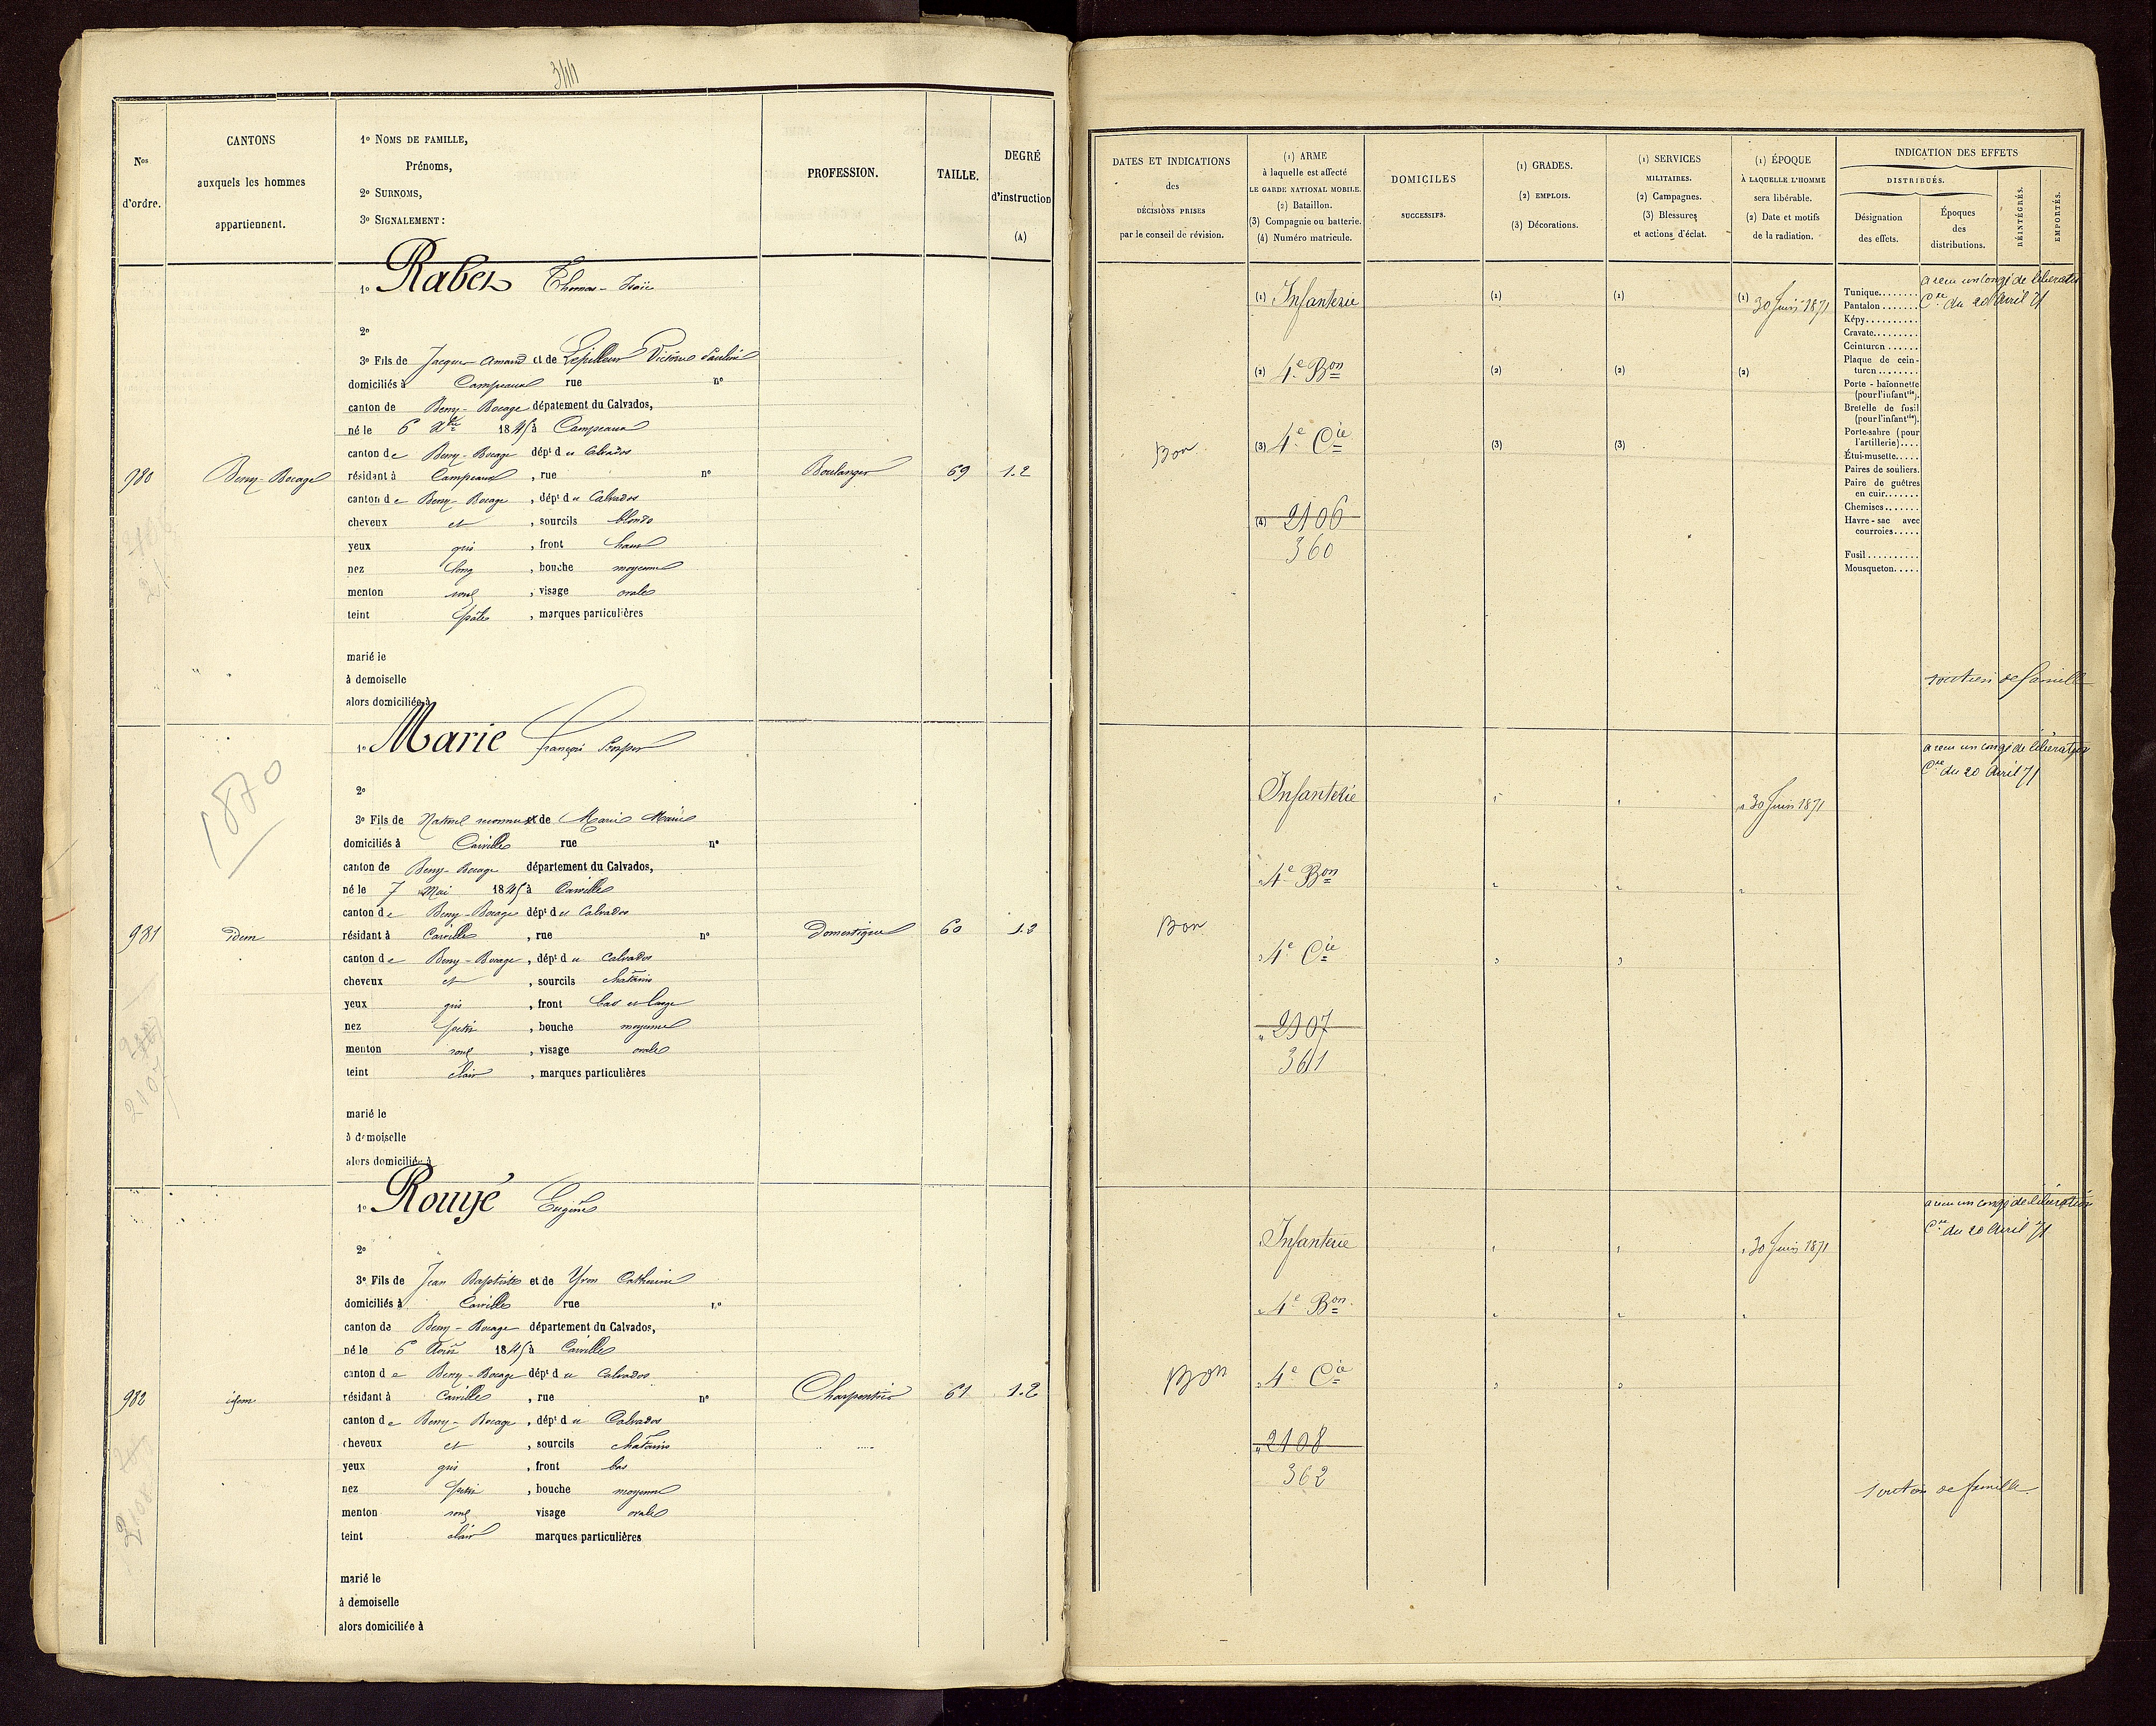 344
Nos d'ordre.
CANTONS auxquels les hommes appartiennent.
1º NOMS DE FAMILLE,
Prénoms,
2º SURNOMS,
3º SIGNALEMENT :
PROFESSION.
TAILLE.
DEGRÉ d'instruction (A)
1º Rabes Thomas-Isaïe
2º
3º Fils de Jacques Amand et de Lepilleur Victoire Pauline
domiciliés à Campeaux rue nº
canton de Beny-Bocage dépatement du Calvados,
né le 6 1845 à Campeaux
canton de Beny-Bocage dépt du Calvados
980 Beny-Bocage résidant à Campeaux , rue nº Boulanger 69 1.2
canton de Beny-Bocage , dépt du Calvados
cheveux et , sourcils blonds
yeux gris , front haut
nez long , bouche moyenne
menton rond , visage ovale
teint pâle , marques particulières
marié le
à demoiselle
alors domiciliée à
1870
1º Marie François Prosper
2º
3º Fils de Naturel reconnu et de Marie Marie
domiciliés à Carville rue nº
canton de Beny-Bocage département du Calvados,
né le 7 Mai 1845 à Carville
canton de Beny-Bocage dépt du Calvados
981 idem résidant à Carville , rue nº Domestique 60 1.2
canton de Beny-Bocage , dépt du Calvados
cheveux et , sourcils chatains
yeux gris , front bas et large
nez petit , bouche moyenne
menton rond , visage ovale
teint clair , marques particulières
2107
marié le
à demoiselle
alors domiciliée à
1º Rouyé Eugène
2º
3º Fils de Jean Baptiste et de Yvon Catherine
domiciliés à Carville rue nº
canton de Beny-Bocage département du Calvados,
né le 6 Août 1845 à Carville
canton de Beny-Bocage dépt du Calvados
982 idem résidant à Carville , rue nº Charpentier 61 1.2
canton de Beny-Bocage , dépt du Calvados
cheveux et , sourcils chatains
yeux gris , front bas
nez petit , bouche moyenne
menton rond visage ovale
teint clair marques particulières
2108
marié le
à demoiselle
alors domiciliée à
DATES ET INDICATIONS des DÉCISIONS PRISES par le conseil de révision.
(1) ARME à laquelle est affecté LE GARDE NATIONAL MOBILE.
(2) Bataillon.
(3) Compagnie ou batterie.
(4) Numéro matricule.
DOMICILES SUCCESSIFS.
(1) GRADES.
(2) EMPLOIS.
(3) Décorations.
(1) SERVICES MILITAIRES.
(2) Campagnes.
(3) Blessures et actions d'éclat.
(1) ÉPOQUE À LAQUELLE L'HOMME sera libérable.
(2) Date et motifs de la radiation.
INDICATION DES EFFETS
DISTRIBUÉS.
Désignation des effets.
Époques des distributions.
RÉINTÉGRÉS.
EMPORTÉS.
(1) Infanterie (1) (1) (1) 30 Juin 1871
a reçu un congé de libération
Cre du 20 Avril 71
(2) 4e Bon (2) (2) (2)
Bon (3) 4e Cie (3) (3)
(4) 2106
360
Tunique.......
Pantalon.......
Képy..........
Cravate.........
Ceinturon ......
Plaque de cein-
turon ........
Porte-baïonnette
(pour l'infantrie).
Bretelle de fusil
(pour l'infantrie).
Porte-sabre (pour
l'artillerie)....
Étui-musette.....
Paires de souliers.
Paire de guêtres
en cuir.......
Chemises.......
Havre-sac avec
courroies.....
Fusil..........
Mousqueton.....
soutien de famille
a reçu un congé de libération
Cre du 20 Avril 71
Infanterie 30 Juin 1871
4e Bon
Bon
4e Cie
2107
361
a reçu un congé de libération
Cre du 20 Avril 71
Infanterie 30 Juin 1871
4e Bon
Bon 4e Cie
2108
362
soutien de famille